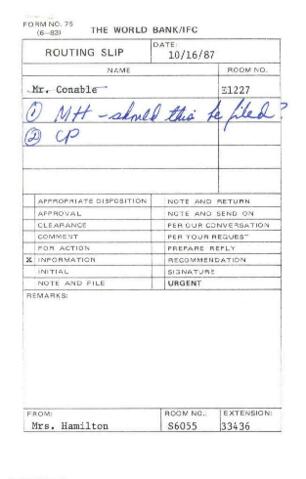 FORM NO. 75
(6-83) THE WORLD BANK/IFC
ROUTING SLIP DATE: 10/16/87
NAME ROOM NO.
Mr. Conable E1227
① MH - should this be filed?
② CP
APPROPRIATE DISPOSITION NOTE AND RETURN
APPROVAL NOTE AND SEND ON
CLEARANCE PER OUR CONVERSATION
COMMENT PER YOUR REQUEST
FOR ACTION PREPARE REPLY
X INFORMATION RECOMMENDATION
INITIAL SIGNATURE
NOTE AND FILE URGENT
REMARKS:
FROM: ROOM NO.: EXTENSION:
Mrs. Hamilton S6055 33436